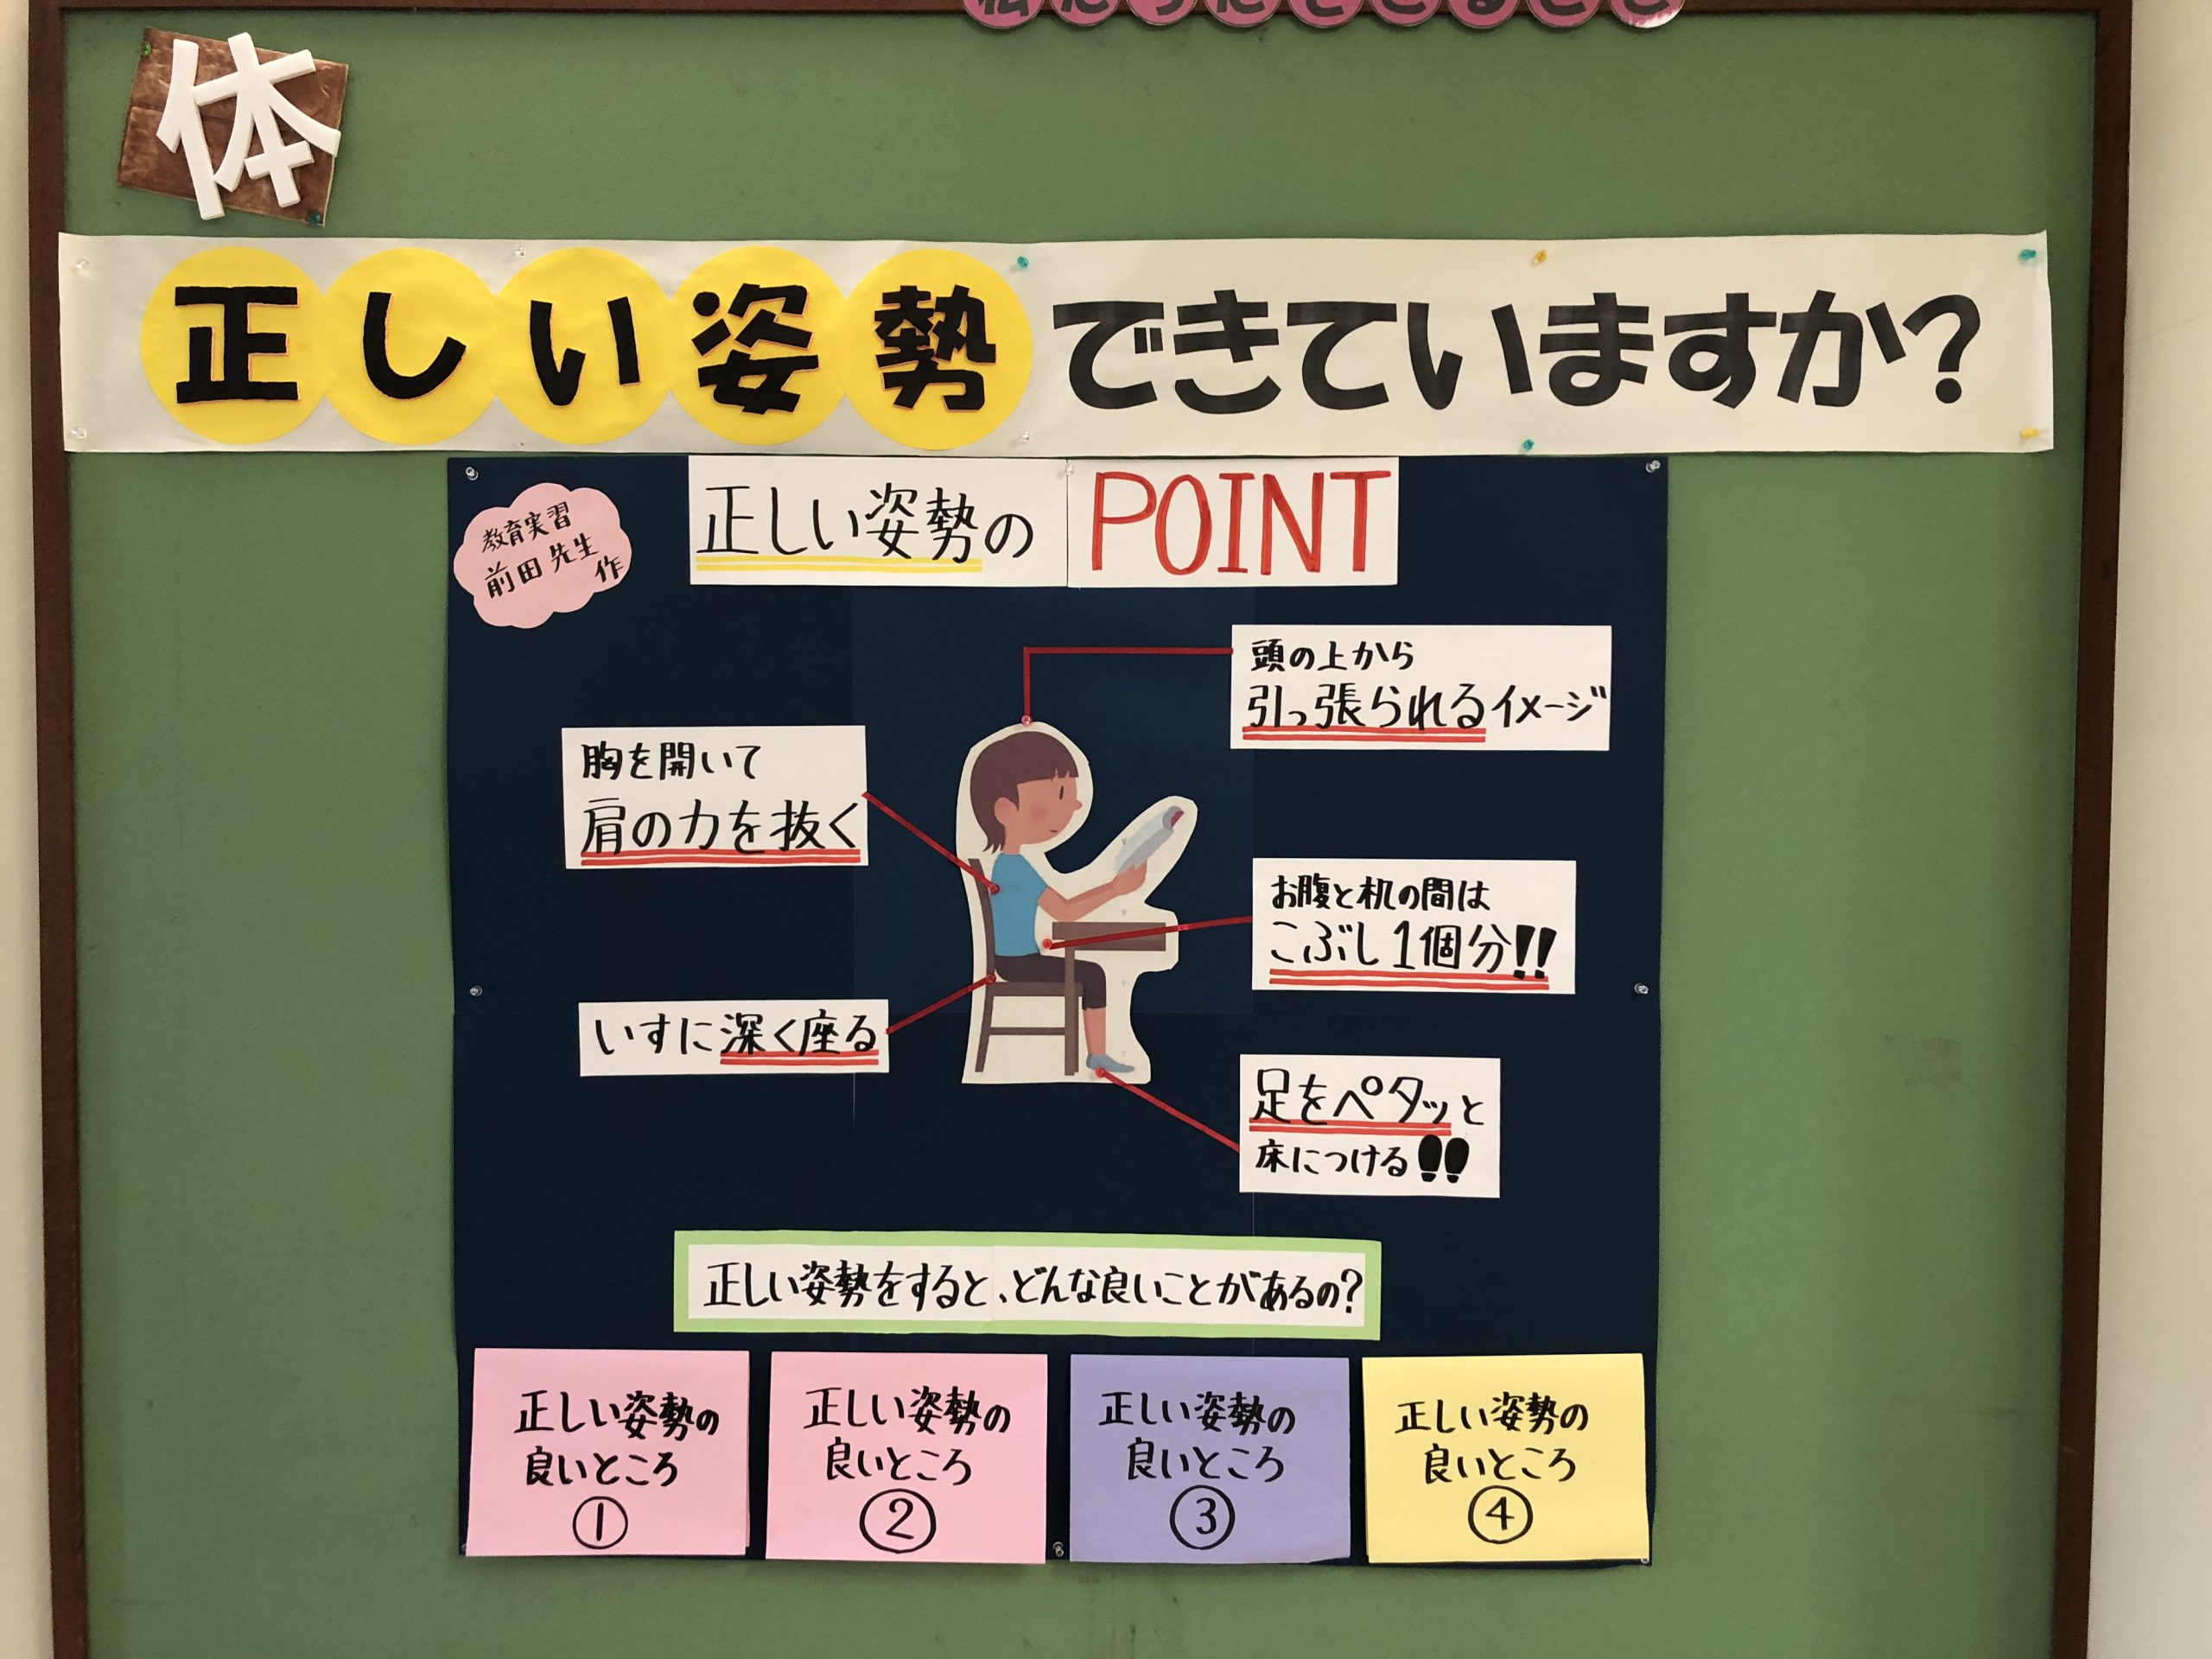 体
正しい姿勢できていますか？
教育実習
前田先生
作
正しい姿勢のPOINT
頭の上から
引っ張られるイメージ
胸を開いて
肩の力を抜く
お腹と机の間は
こぶし1個分!!
いすに深く座る
足をペタッと
床につける!!
正しい姿勢をすると、どんな良いことがあるの?
正しい姿勢の
良いところ
①
正しい姿勢の
良いところ
②
正しい姿勢の
良いところ
③
正しい姿勢の
良いところ
④